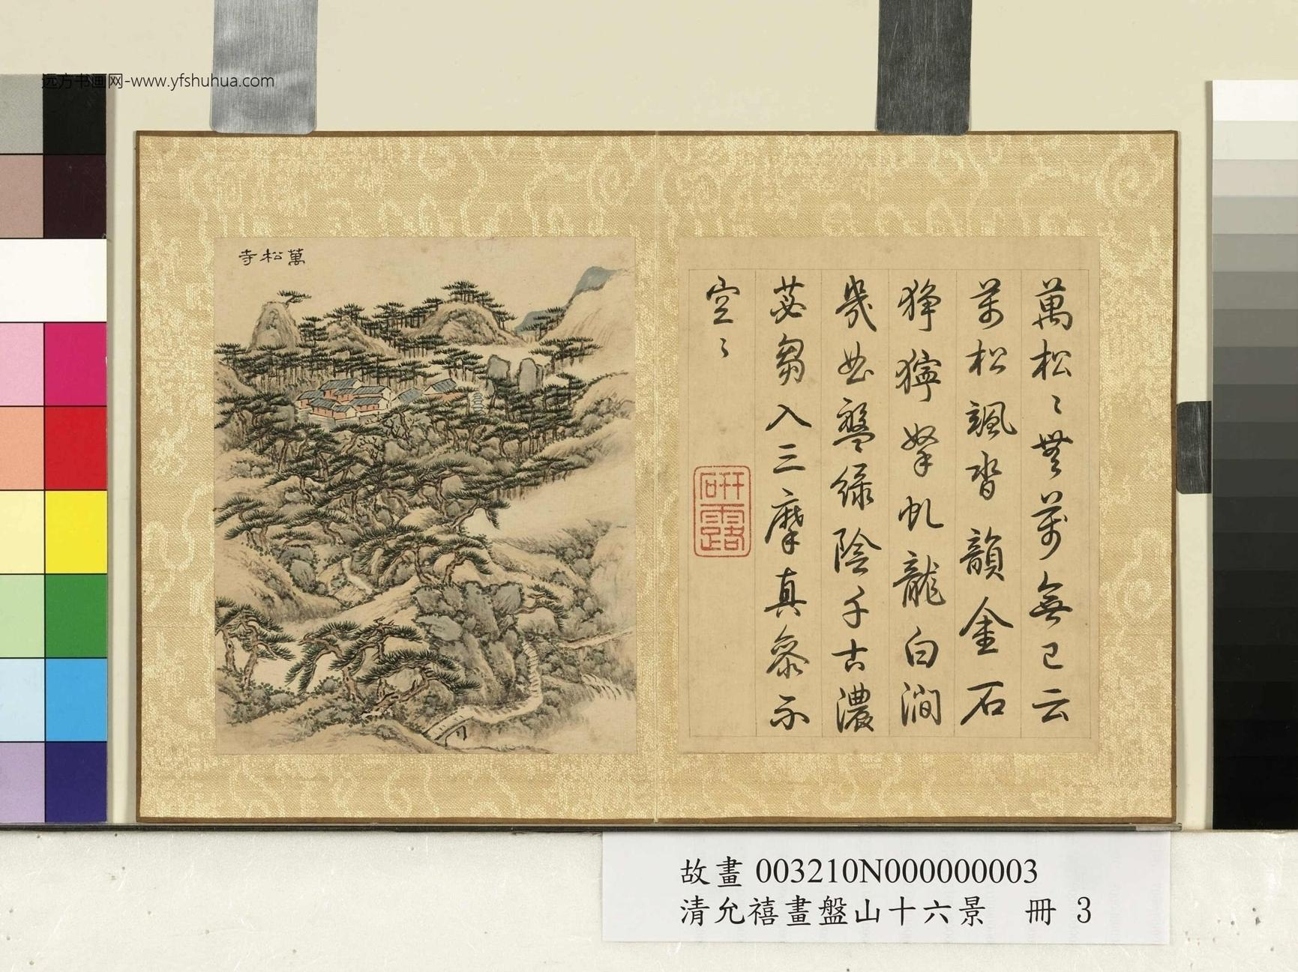 远方书画网-www.yfshuhua.com
萬松寺
萬松〻無萬無已云
万松颯沓韻金石
狰獰拏虬龍白澗
幾曲盤綠陰千古濃
苾芻入三摩真參示
空〻
研露
故畫 003210N000000003
清允禧畫盤山十六景 冊 3